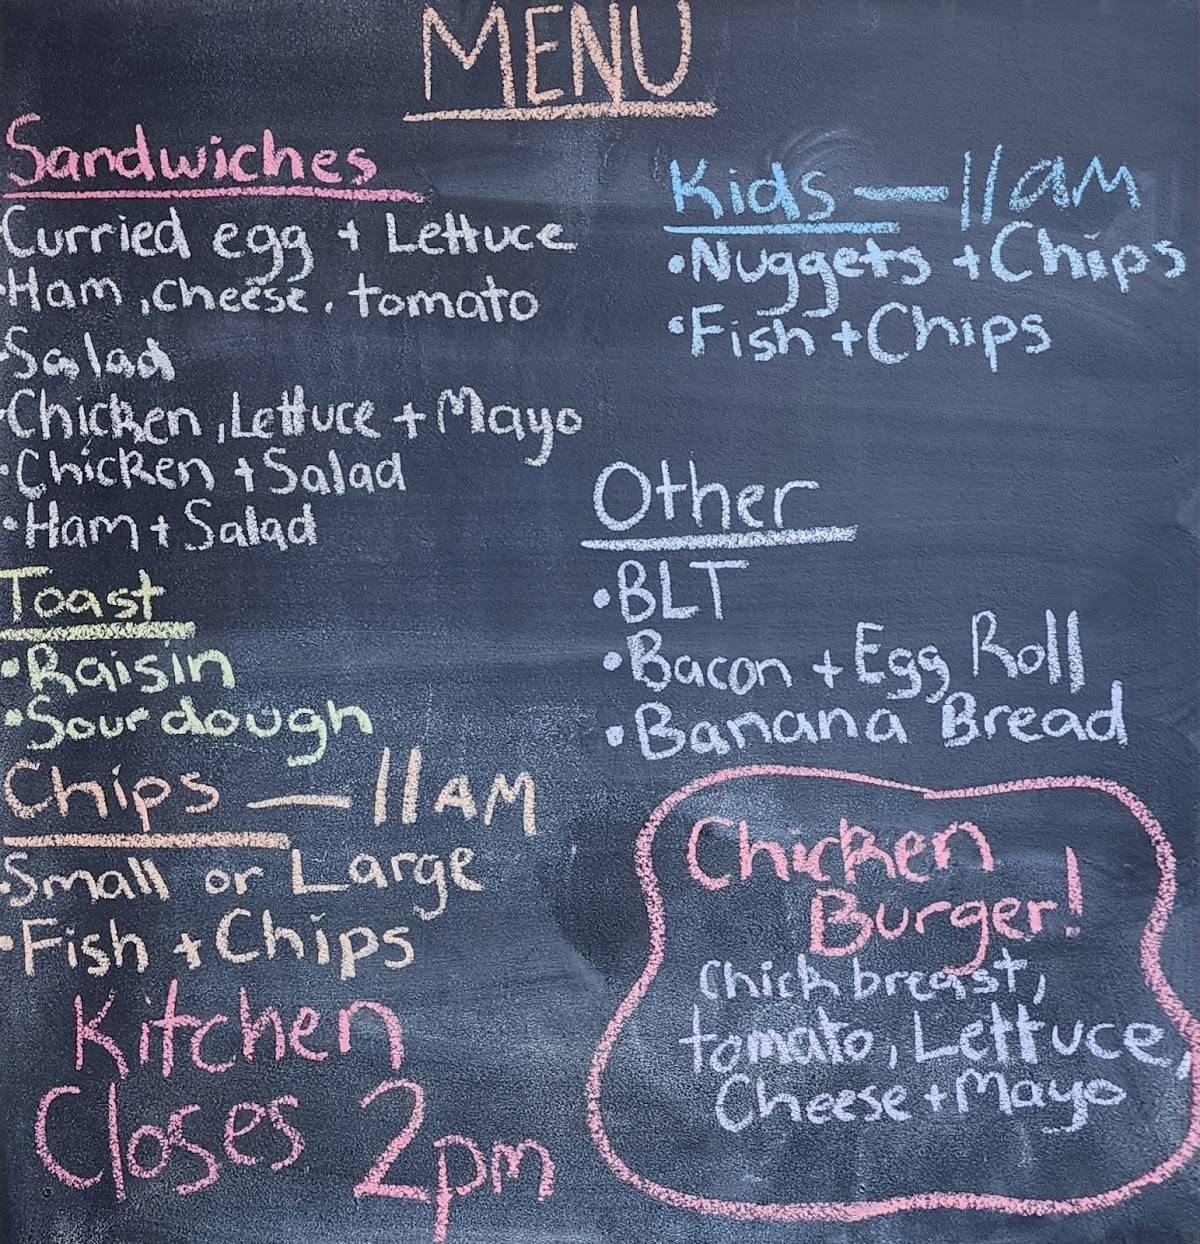 MENU
Sandwiches
Curried egg + Lettuce
·Ham, cheese, tomato
·Salad
·Chicken, Lettuce + Mayo
·Chicken + Salad
·Ham + Salad
Toast
·Raisin
·Sourdough
Chips — 11AM
·Small or Large
·Fish + Chips
Kitchen
Closes 2pm
Kids — 11am
·Nuggets + Chips
·Fish + Chips
Other
·BLT
·Bacon + Egg Roll
·Banana Bread
Chicken
Burger!
Chick breast,
tomato, Lettuce,
Cheese + Mayo